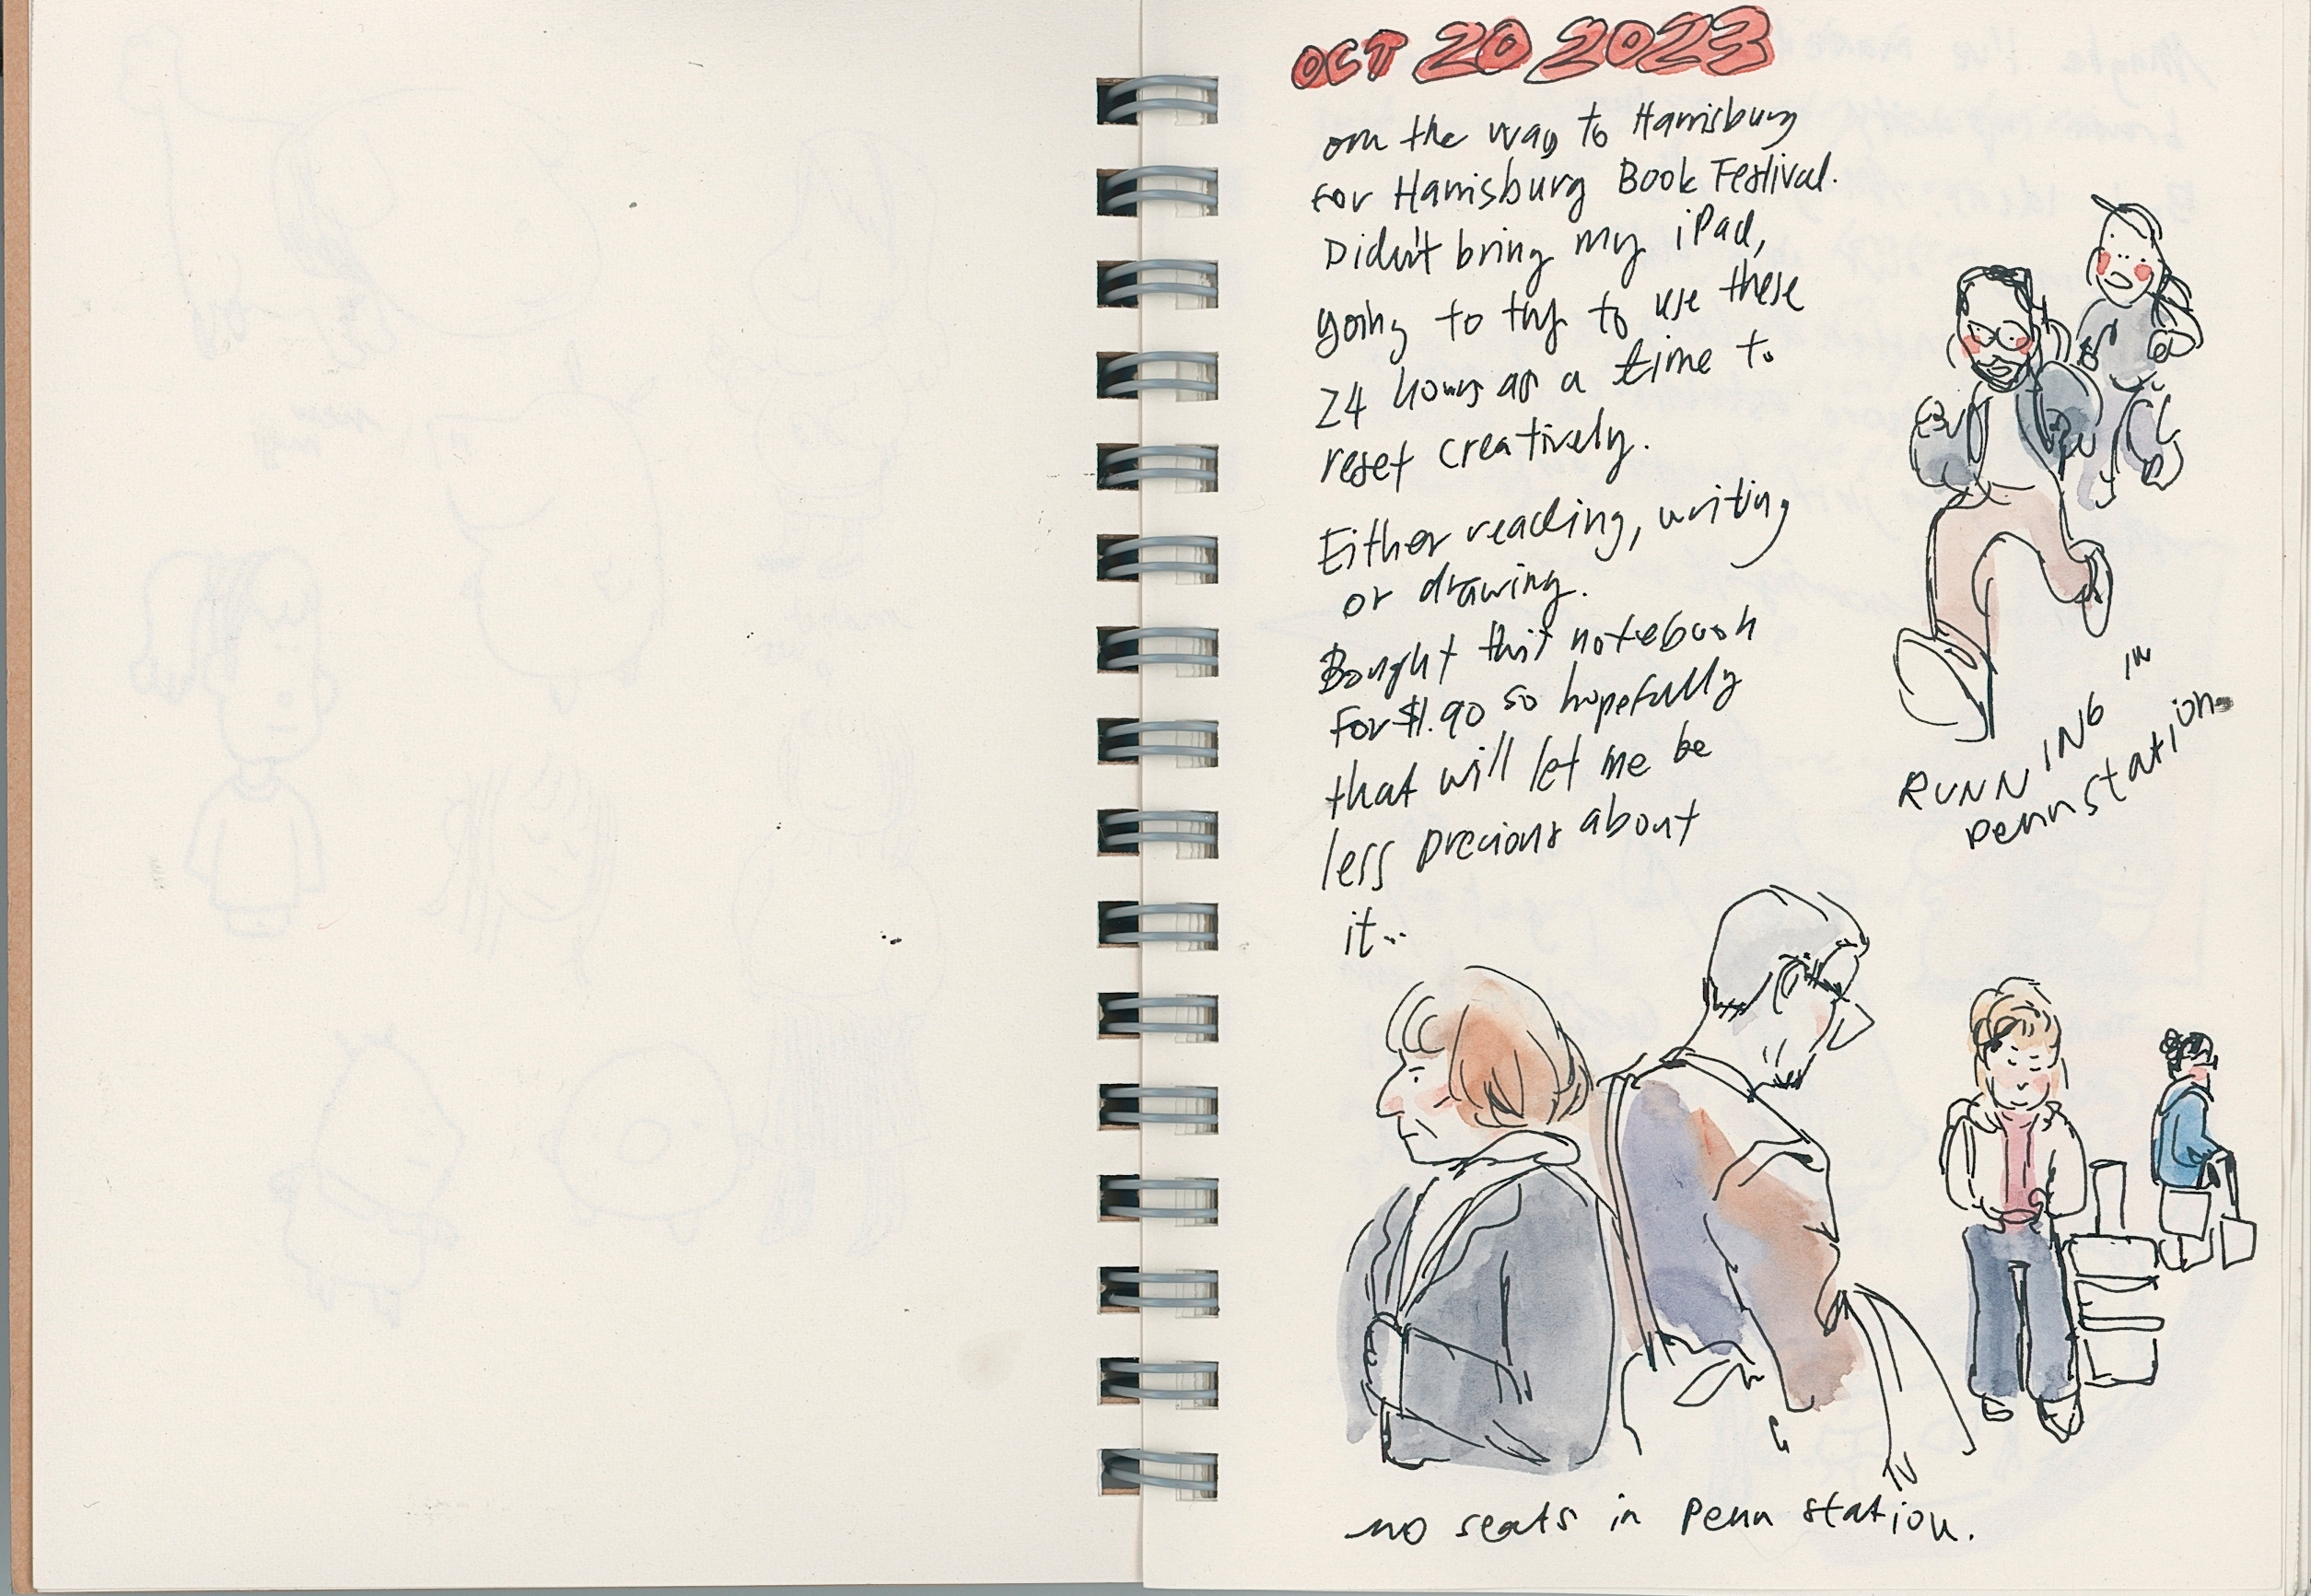 OCT 20 2023
on the way to Harrisburg
for Harrisburg Book Festival.
Didn't bring my iPad,
going to try to use these
24 hours as a time to
reset creatively.
Either reading, writing
or drawing.
Bought this notebook
for $1.90 so hopefully
that will let me be
less precious about
it..
RUNNING IN
Penn station
no seats in Penn station.